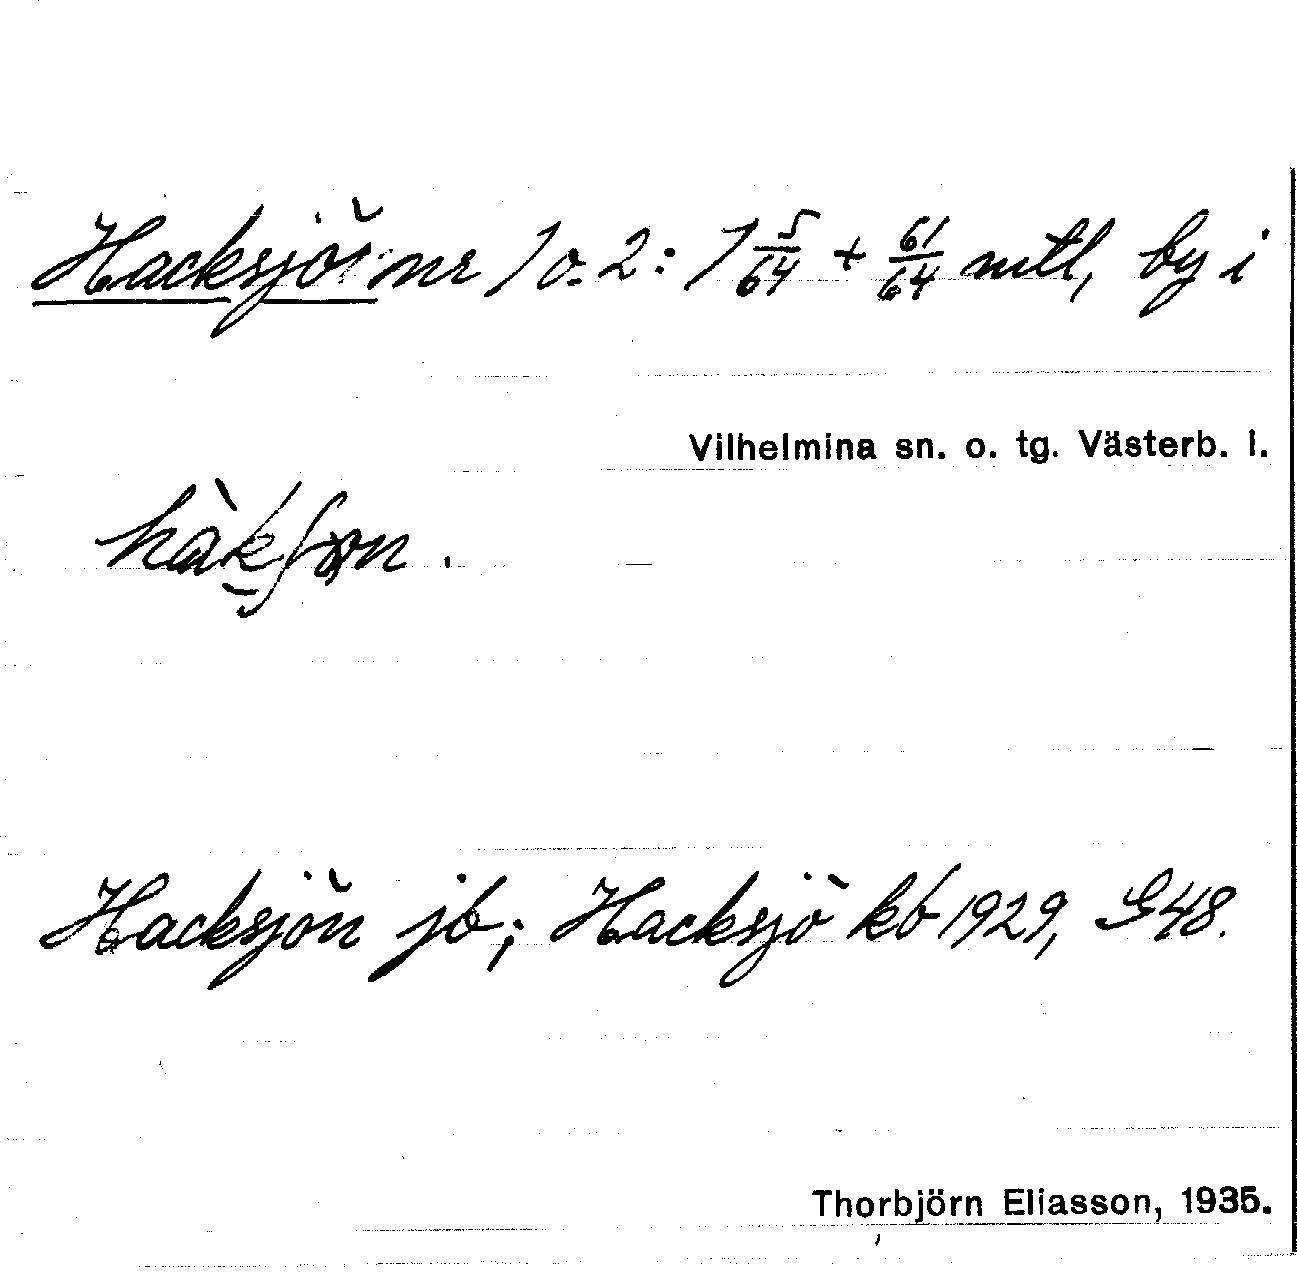 Hacksjön nr 1 o. 2: 1 5/64 + 61/64 mtl, by i
Vilhelmina sn. o. tg. Västerb. l.
Hacksjön jb; Hacksjö kb 1929, G48.
Thorbjörn Eliasson, 1935.